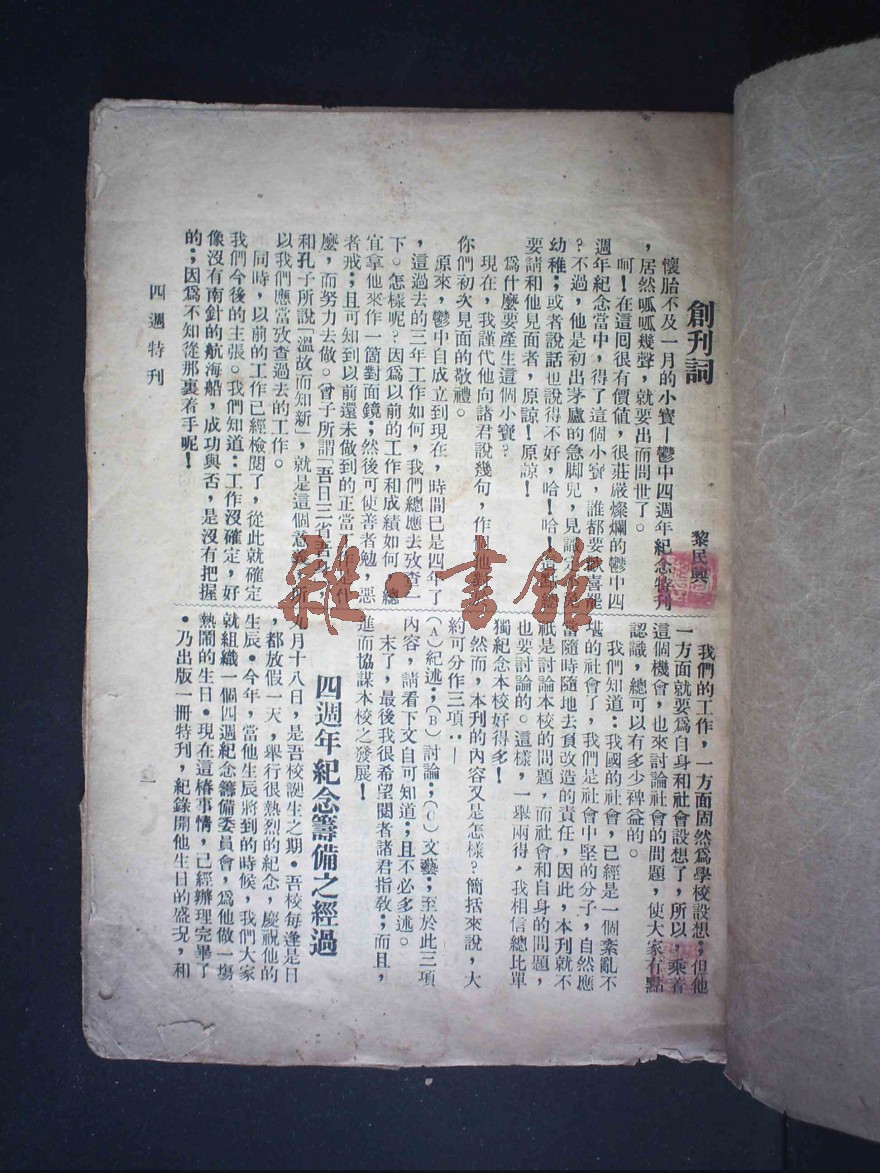 創刊詞
黎民興
懷胎不及一月的小寶—鬱中四週年紀念特刊
，居然呱呱幾聲，就要出而問世了。
呵！在這囘很有價値，很莊嚴燦爛的鬱中四
週年紀念當中，得了這個小寶，誰都要歡喜罷
？不過，他是初出茅廬的急脚兒，見識
幼稚；或者說話也說得不好，哈！哈！
要請和他見面者，原諒！原諒！
爲什麼要產生這個小寶？
現在，我謹代他向諸君說幾句，作個他對
你們初次見面的敬禮。
原來，鬱中自成立到現在，時間巳是四年了
，這過去的三年工作如何，我們總應去攷查
下。怎樣呢？因爲以前的工作和成績如何，總
宜拿他來作一箇對面鏡；然後可使善者勉，惡
者戒；且可知到以前還未做到的正當工作是什
麼，而努力去做。曾子所謂「吾日三省吾身」
和孔子所說「溫故而知新」，就是這個意思。所
以我們應當攷查過去的工作。
同時，以前的工作已經檢閱了，從此就確定
我們今後的主張。我們知道：工作沒確定，好
像沒有南針的航海船，成功與否，是沒有把握
的；因爲不知從那裏着手呢！
我們的工作，一方面固然爲學校設想；但他
一方面就要爲自身和社會設想了，所以，乘着
這個機會，也來討論社會的問題，使大家有點
認識，總可以有多少裨益的。
我們知道：我國的社會，已經是一個紊亂不
堪的社會了，我們是社會中堅的分子，自然應
當隨時隨地去負改造的責任，因此，本刊就不
祇是討論本校的問題，而社會和自身的問題，
也要討論的。這樣，一舉兩得，我相信總比單
獨紀念本校好得多！
然而，本刊的內容又是怎樣？簡括來說，大
約可分作三項：—
（A）紀述；（B）討論；（C）文藝；至於此三項
內容，請看下文自可知道；且不必多述。
末了，最後我很希望閱者諸君指敎；而且，
進而協謀本校之發展！
四週年紀念籌備之經過
九月十八日，是吾校誕生之期。吾校每逢是日
，都放假一天，舉行很熱烈的紀念，慶祝他的
生辰。今年，當他生辰將到的時候，我們大家
就組織一個四週紀念籌備委員會，爲他做一塲
熱閙的生日。現在這樁事情，已經辦理完畢了
。乃出版一冊特刊，紀錄開他生日的盛況，和
四週特刊
一
雜·書館